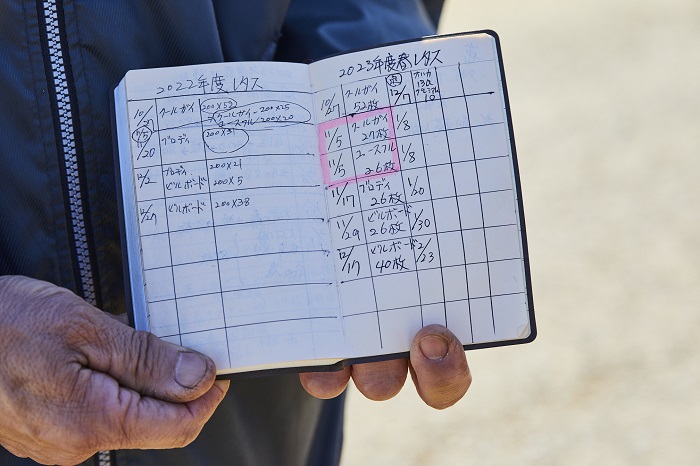 2022年度レタス
10/27 クールガイ 200×52
クールガイ 200×25
エースフル 200×20
11/5
11/20 ブロディ 200×31
12/2 ブロディ 200×21
ビルボード 200×5
12/27 ビルボード 200×38
2023年度春レタス
10/27 クールガイ 52枚 12/7
11/5 クールガイ 27枚 1/8
11/5 エースフル 26枚 1/8
11/17 ブロディ 26枚 1/20
11/29 ビルボード 26枚 1/30
12/17 ビルボード 40枚 2/23